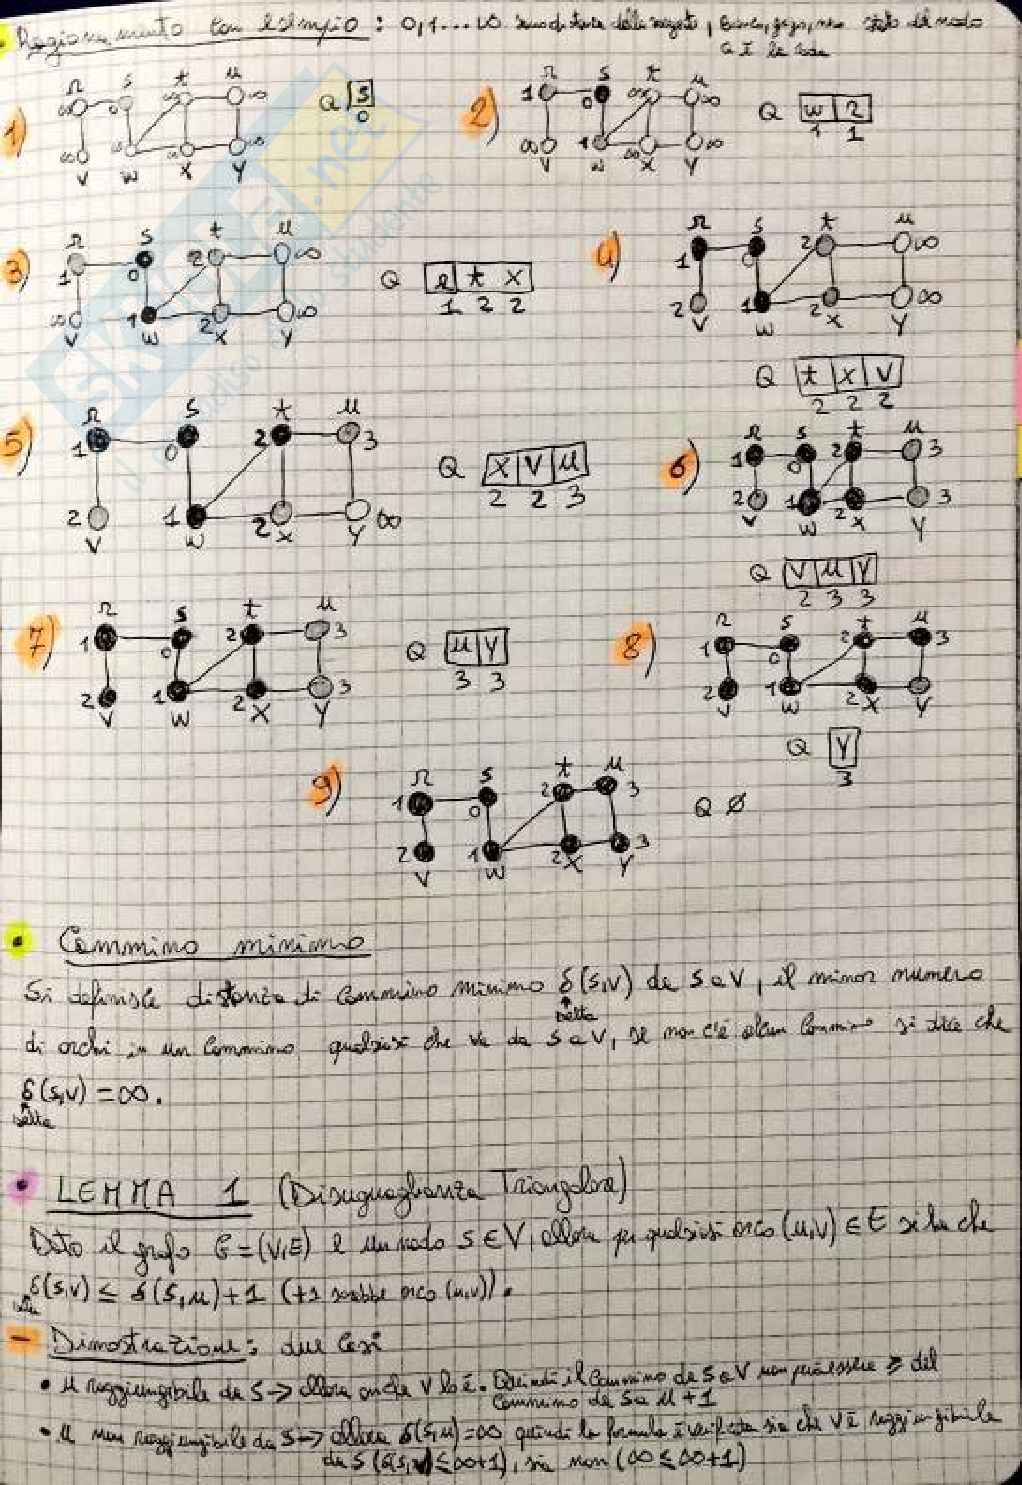 Ragionamento con esempio: 0,1...∞ sono distanze dalla sorgente, bianco, grigio, nero stato del nodo
Q è la coda
1) r s t u ∞ ∞ 0 ∞ ∞ ∞ ∞ ∞ ∞ v w x y Q s 0
2) r s t u 1 0 ∞ ∞ ∞ 1 ∞ ∞ v w x y Q w r 1 1
3) r s t u 1 0 2 ∞ ∞ 1 2 ∞ v w x y Q r t x 1 2 2
4) r s t u 1 0 2 ∞ 2 1 2 ∞ v w x y Q t x v 2 2 2
5) r s t u 1 0 2 3 2 1 2 ∞ v w x y Q x v u 2 2 3
6) r s t u 1 0 2 3 2 1 2 3 v w x y Q v u y 2 3 3
7) r s t u 1 0 2 3 2 1 2 3 v w x y Q u y 3 3
8) r s t u 1 0 2 3 2 1 2 3 v w x y Q y 3
9) r s t u 1 0 2 3 2 1 2 3 v w x y Q ∅
• Cammino minimo
Si definisce distanza di cammino minimo δ(s,v) da s a v, il minor numero
delta
di archi in un cammino qualsiasi che va da s a v, se non c'è alcun cammino si dice che
δ(s,v) = ∞.
delta
• LEMMA 1 (Disuguaglianza Triangolare)
Dato il grafo G=(V,E) e un nodo s∈V, allora per qualsiasi arco (u,v)∈E si ha che
δ(s,v) ≤ δ(s,u)+1 (+1 sarebbe arco (u,v)).
delta
- Dimostrazione: due casi
• u raggiungibile da s → allora anche v lo è. Quindi il cammino da s a v non può essere > del
cammino da s a u +1
• u non raggiungibile da s → allora δ(s,u)=∞ quindi la formula è verificata sia che v è raggiungibile
da s (δ(s,v) ≤ ∞+1), sia non (∞ ≤ ∞+1)